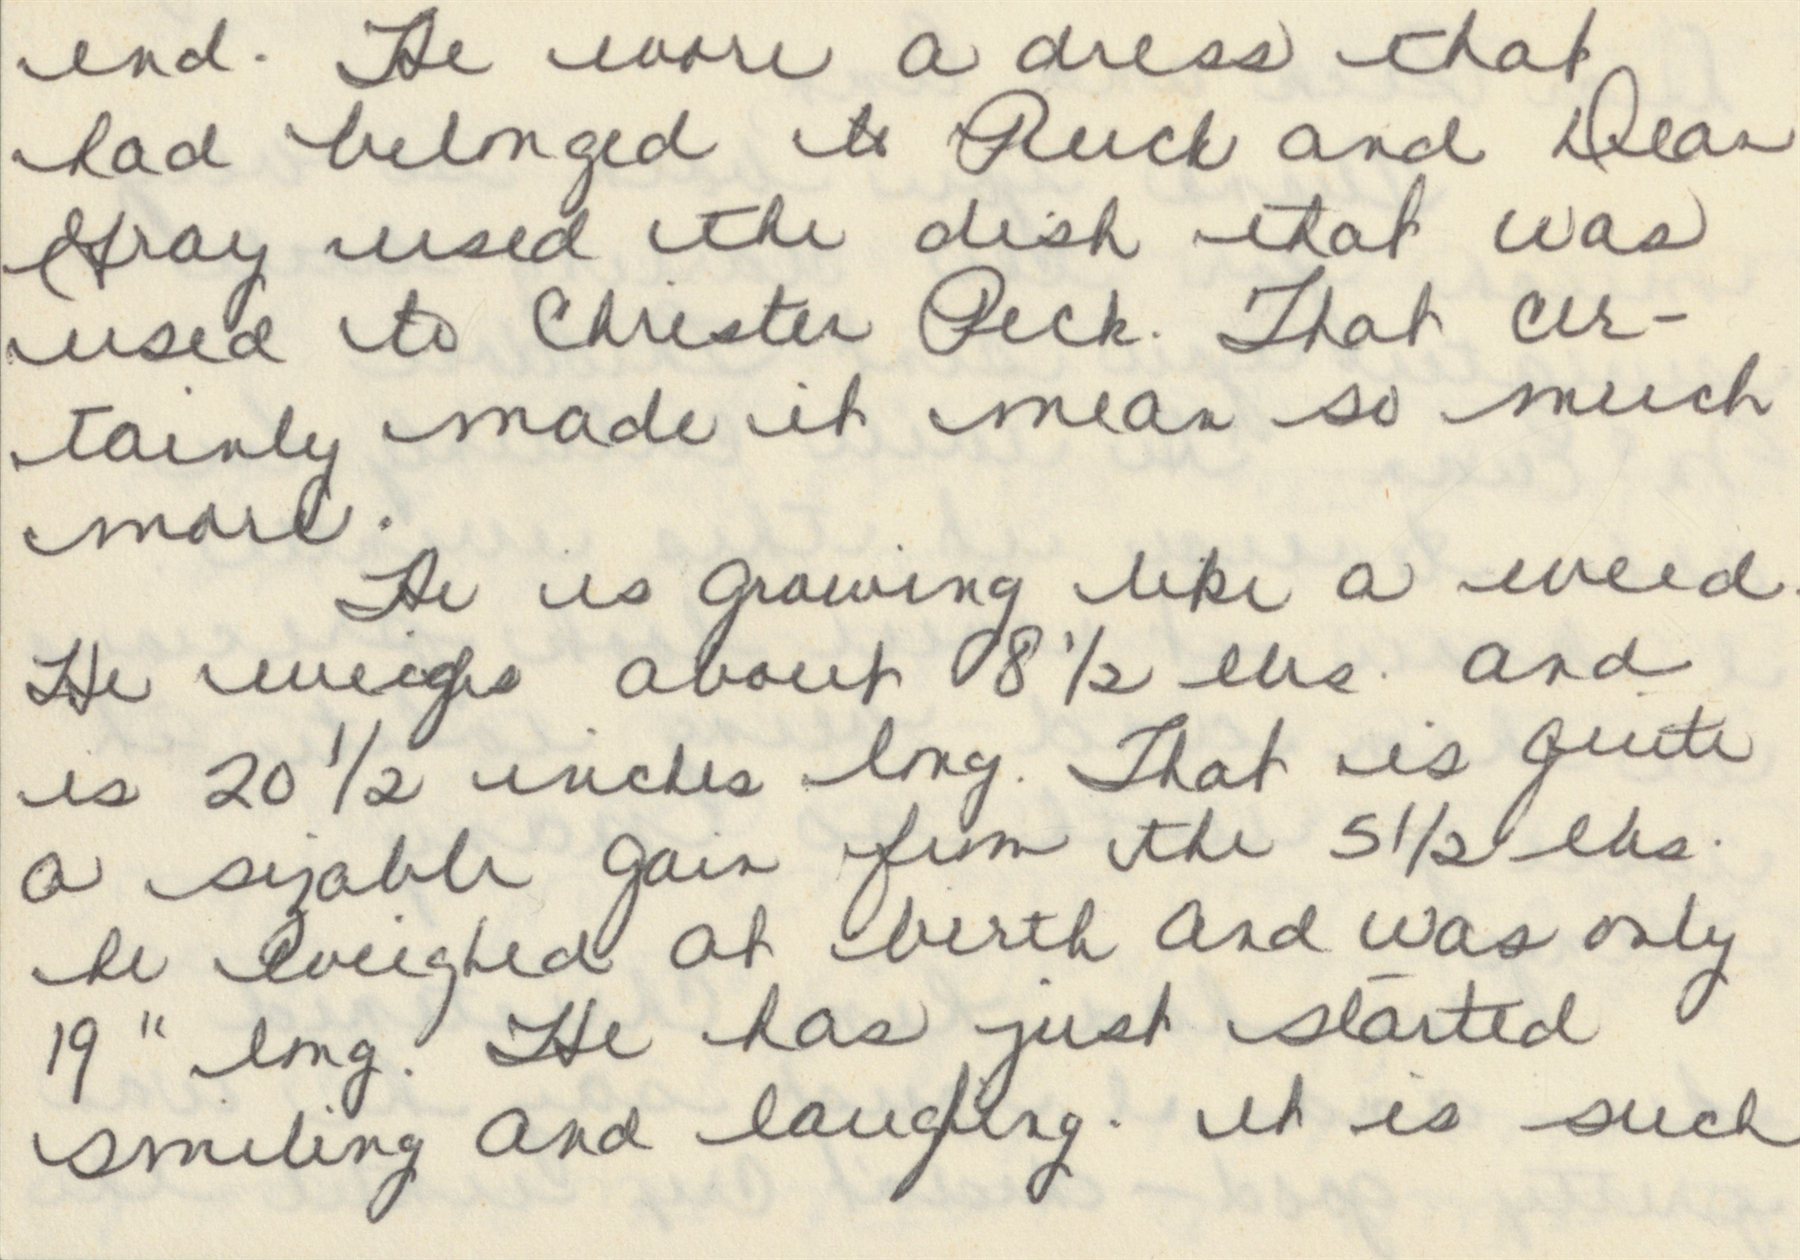 end. He wore a dress that
had belonged to Ruck and Dean
Gray used the dish that was
used to Christen Peck. That cer-
tainly made it mean so much
more.
He is growing like a weed.
He weighs about 8 1/2 lbs. and
is 20 1/2 inches long. That is quite
a sizable gain from the 5 1/2 lbs.
he weighed at birth and was only
19" long. He has just started
smiling and laughing. It is such